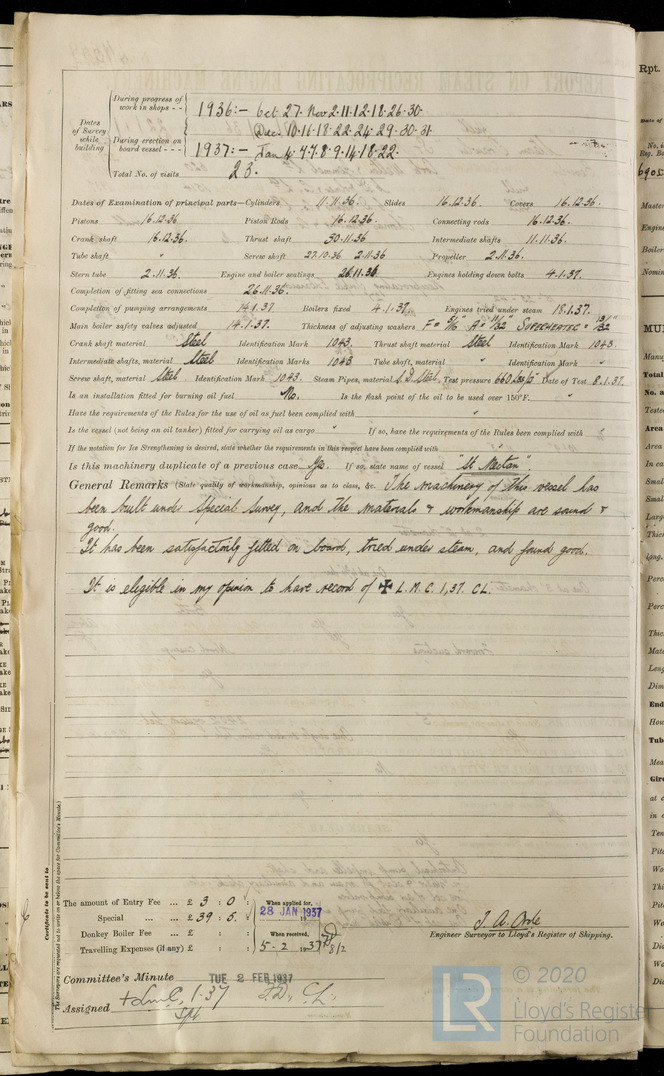 During progress of work in shops - -
1936:- Oct 27. Nov 2.11.12.18.26.30.
Dec. 10.16.18.22.24.29.30.31.
Dates of Survey while building
During erection on board vessel - - -
1937:- Jan 4.4.7.8.9.14.18.22.
Total No. of visits 23.
Dates of Examination of principal parts—Cylinders 11.11.36. Slides 16.12.36. Covers 16.12.36.
Pistons 16.12.36 Piston Rods 16.12.36. Connecting rods 16.12.36.
Crank shaft 16.12.36. Thrust shaft 30.11.36 Intermediate shafts 11.11.36.
Tube shaft " Screw shaft 27.10.36 2.11.36 Propeller 2.11.36.
Stern tube 2.11.36. Engine and boiler seatings 26.11.36 Engines holding down bolts 4.1.37.
Completion of fitting sea connections 26.11.36.
Completion of pumping arrangements 14.1.37 Boilers fixed 4.1.37. Engines tried under steam 18.1.37.
Main boiler safety valves adjusted 14.1.37. Thickness of adjusting washers F= 5/16" A= 11/32" SUPERHEATER = 13/32"
Crank shaft material Steel Identification Mark 1043. Thrust shaft material Steel Identification Mark 1043
Intermediate shafts, material Steel Identification Marks 1043 Tube shaft, material " Identification Mark "
Screw shaft, material Steel Identification Mark 1043. Steam Pipes, material S.D. Steel. Test pressure 660 lbs/□" Date of Test 8.1.37.
Is an installation fitted for burning oil fuel No. Is the flash point of the oil to be used over 150°F. "
Have the requirements of the Rules for the use of oil as fuel been complied with "
Is the vessel (not being an oil tanker) fitted for carrying oil as cargo " If so, have the requirements of the Rules been complied with "
If the notation for Ice Strengthening is desired, state whether the requirements in this respect have been complied with "
Is this machinery duplicate of a previous case Yes. If so, state name of vessel "St Nectan".
General Remarks (State quality of workmanship, opinions as to class, &c. The machinery of this vessel has
been built under Special Survey, and the materials & workmanship are sound &
good.
It has been satisfactorily fitted on board, tried under steam, and found good.
It is eligible in my opinion to have record of ✠ L.M.C. 1,37. CL.
Certificate to be sent to
(The Surveyors are requested not to write on or below the space for Committee's Minute.)
The amount of Entry Fee ... £ 3 : 0 :
Special ... ... £ 39 : 5 :
Donkey Boiler Fee ... £ : :
Travelling Expenses (if any) £ : :
When applied for,
28 JAN 1937
When received,
5.2.1937
8/2
J. A. Orde
Engineer Surveyor to Lloyd's Register of Shipping.
Committee's Minute TUE 2 FEB 1937
Assigned + L.M.C. 1.37 F.D., C.L.
Spt
LR © 2020
Lloyd's Register
Foundation
Rpt.